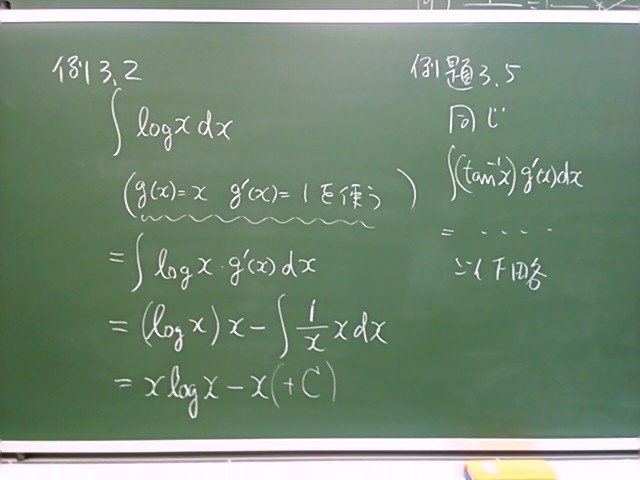 例3.2
∫ log x dx
(g(x) = x g'(x) = 1 を使う)
= ∫ log x · g'(x) dx
= (log x) x − ∫ 1/x x dx
= x log x − x (+C)
例題3.5
同じ
∫ (tan⁻¹x) g'(x) dx
= ・・・・・
以下略